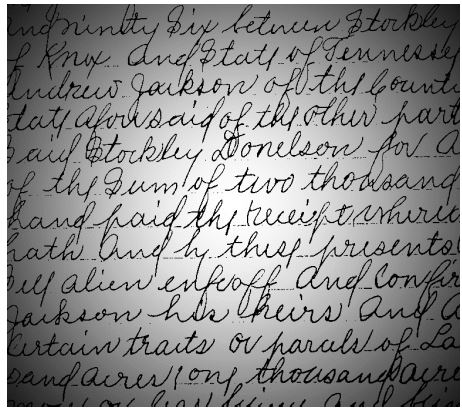 and ninety Six between Stockley
of Knox and State of Tennessee
Andrew Jackson of the County
State aforesaid of the other part
Said Stockley Donelson for a
of the Sum of two thousand
hand paid the receipt where
hath and by these presents
Sell alien enfeoff and Confir
Jackson his heirs and a
Certain traits or parcels of La
sand acres (one thousand acre
more or less being and bein